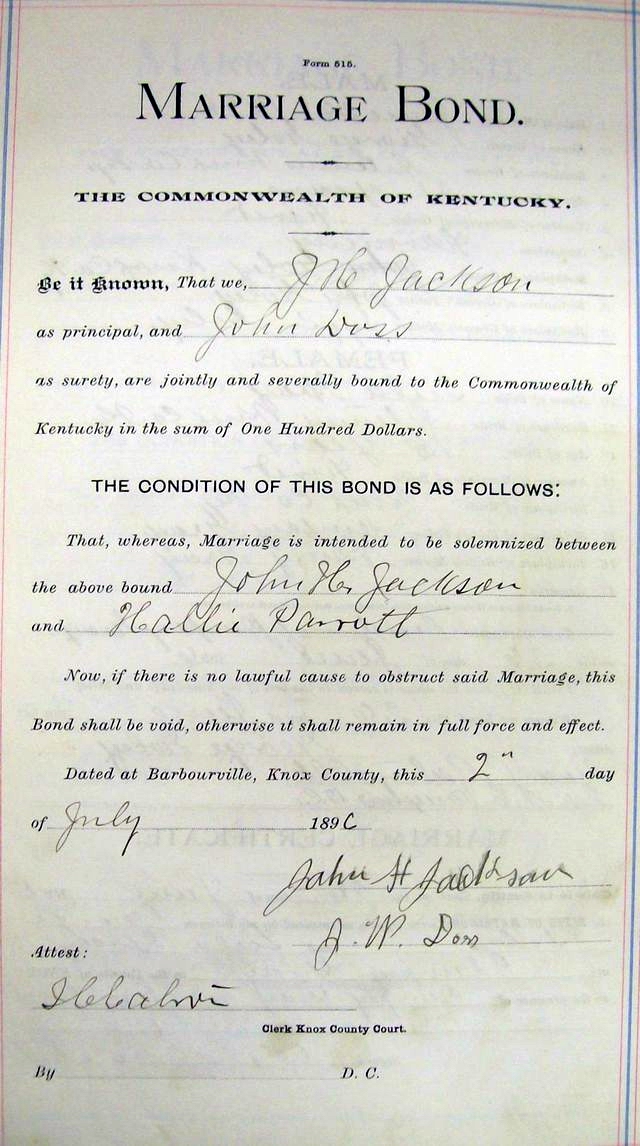 Form 515.
MARRIAGE BOND.
THE COMMONWEALTH OF KENTUCKY.
Be it Known, That we, J H Jackson
as principal, and John Doss
as surety, are jointly and severally bound to the Commonwealth of
Kentucky in the sum of One Hundred Dollars.
THE CONDITION OF THIS BOND IS AS FOLLOWS:
That, whereas, Marriage is intended to be solemnized between
the above bound John H. Jackson
and Hallie Parrott
Now, if there is no lawful cause to obstruct said Marriage, this
Bond shall be void, otherwise it shall remain in full force and effect.
Dated at Barbourville, Knox County, this 2" day
of July 189
John H Jackson
J. W. Doss
Attest:
Clerk Knox County Court.
By D. C.